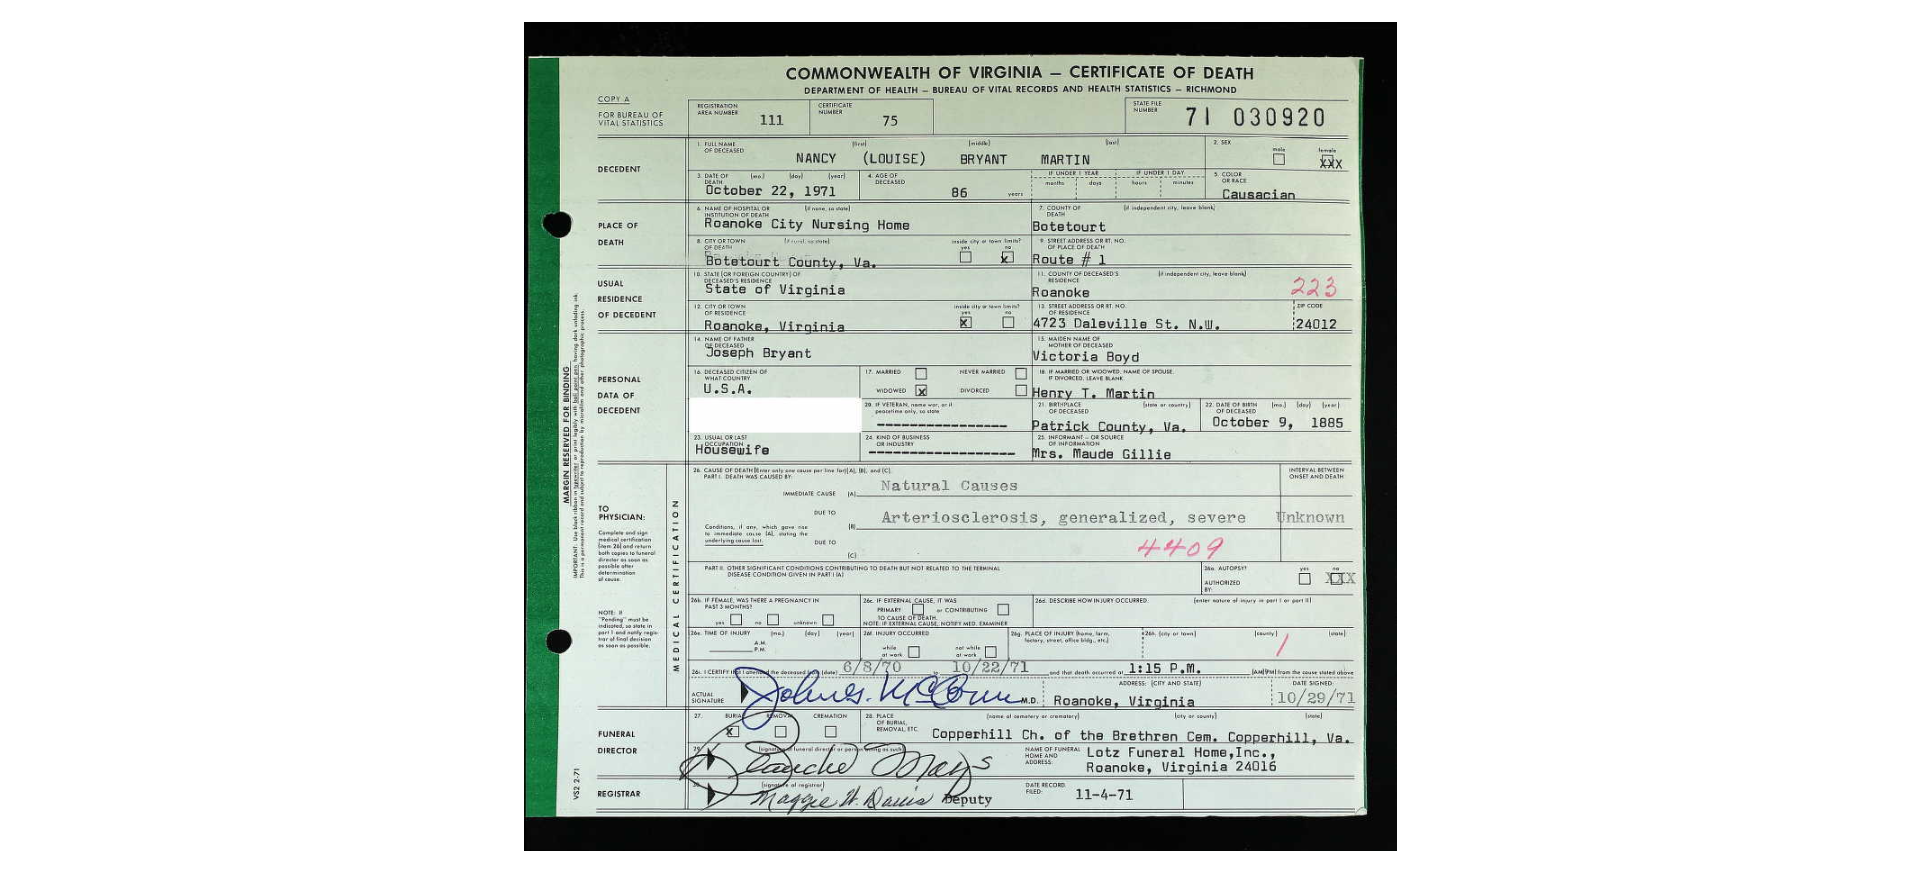 COMMONWEALTH OF VIRGINIA — CERTIFICATE OF DEATH
DEPARTMENT OF HEALTH — BUREAU OF VITAL RECORDS AND HEALTH STATISTICS — RICHMOND
COPY A
FOR BUREAU OF VITAL STATISTICS
REGISTRATION AREA NUMBER 111
CERTIFICATE NUMBER 75
STATE FILE NUMBER 71 030920
DECEDENT
1. FULL NAME OF DECEASED (first) (middle) (last)
NANCY (LOUISE) BRYANT MARTIN
2. SEX male female XXX
3. DATE OF DEATH (mo.) (day) (year)
October 22, 1971
4. AGE OF DECEASED 86 years
IF UNDER 1 YEAR months days
IF UNDER 1 DAY hours minutes
5. COLOR OR RACE
Causacian
PLACE OF DEATH
6. NAME OF HOSPITAL OR INSTITUTION OF DEATH (if none, so state)
Roanoke City Nursing Home
7. COUNTY OF DEATH (if independent city, leave blank)
Botetourt
8. CITY OR TOWN OF DEATH (if rural, so state)
Botetourt County, Va.
inside city or town limits? yes no x
9. STREET ADDRESS OR RT. NO. OF PLACE OF DEATH
Route # 1
USUAL RESIDENCE OF DECEDENT
10. STATE (OR FOREIGN COUNTRY) OF DECEASED'S RESIDENCE
State of Virginia
11. COUNTY OF DECEASED'S RESIDENCE (if independent city, leave blank)
Roanoke 223
12. CITY OR TOWN OF RESIDENCE
Roanoke, Virginia
inside city or town limits? yes x no
13. STREET ADDRESS OR RT. NO. OF RESIDENCE
4723 Daleville St. N.W.
ZIP CODE
24012
PERSONAL DATA OF DECEDENT
14. NAME OF FATHER OF DECEASED
Joseph Bryant
15. MAIDEN NAME OF MOTHER OF DECEASED
Victoria Boyd
16. DECEASED CITIZEN OF WHAT COUNTRY
U.S.A.
17. MARRIED NEVER MARRIED
WIDOWED x DIVORCED
18. IF MARRIED OR WIDOWED, NAME OF SPOUSE. IF DIVORCED, LEAVE BLANK
Henry T. Martin
20. IF VETERAN, name war, or if peacetime only, so state
21. BIRTHPLACE OF DECEASED (state or country)
Patrick County, Va.
22. DATE OF BIRTH OF DECEASED (mo.) (day) (year)
October 9, 1885
23. USUAL OR LAST OCCUPATION
Housewife
24. KIND OF BUSINESS OR INDUSTRY
25. INFORMANT – OR SOURCE OF INFORMATION
Mrs. Maude Gillie
MARGIN RESERVED FOR BINDING
MEDICAL CERTIFICATION
TO PHYSICIAN:
Complete and sign medical certification (item 26) and return both copies to funeral director as soon as possible after determination of cause.
NOTE: If "Pending" must be indicated, so state in part I and notify registrar of final decision as soon as possible.
26. CAUSE OF DEATH (Enter only one cause per line for (A), (B), and (C).
PART I. DEATH WAS CAUSED BY:
INTERVAL BETWEEN ONSET AND DEATH
IMMEDIATE CAUSE (A) Natural Causes
DUE TO
Conditions, if any, which gave rise to immediate cause (A), stating the underlying cause last.
(B) Arteriosclerosis, generalized, severe Unknown
DUE TO
(C)
4409
PART II. OTHER SIGNIFICANT CONDITIONS CONTRIBUTING TO DEATH BUT NOT RELATED TO THE TERMINAL DISEASE CONDITION GIVEN IN PART I (A)
26a. AUTOPSY? yes no XXX
AUTHORIZED BY:
26b. IF FEMALE, WAS THERE A PREGNANCY IN PAST 3 MONTHS?
yes no unknown
26c. IF EXTERNAL CAUSE, IT WAS
PRIMARY or CONTRIBUTING
TO CAUSE OF DEATH.
NOTE: IF EXTERNAL CAUSE, NOTIFY MED. EXAMINER
26d. DESCRIBE HOW INJURY OCCURRED. (enter nature of injury in part I or part II)
26e. TIME OF INJURY (mo.) (day) (year)
A.M.
P.M.
26f. INJURY OCCURRED
while at work not while at work
26g. PLACE OF INJURY (home, farm, factory, street, office bldg., etc.)
26h. (city or town) (county) (state)
1
I CERTIFY that I attended the deceased from (date) 6/8/70 to 10/22/71 and that death occurred at 1:15 P.M. from the cause stated above
ACTUAL SIGNATURE
M.D.
ADDRESS: (CITY AND STATE)
Roanoke, Virginia
DATE SIGNED:
10/29/71
FUNERAL DIRECTOR
27. BURIAL x REMOVAL CREMATION
28. PLACE OF BURIAL, REMOVAL, ETC. (name of cemetery or crematory) (city or county) (state)
Copperhill Ch. of the Brethren Cem. Copperhill, Va.
29. (signature of funeral director or person acting as such)
Blanche Mays
NAME OF FUNERAL HOME AND ADDRESS:
Lotz Funeral Home,Inc.,
Roanoke, Virginia 24016
REGISTRAR
(signature of registrar)
Maggie W. Davis Deputy
DATE RECORD FILED:
11-4-71
VS2 2-71